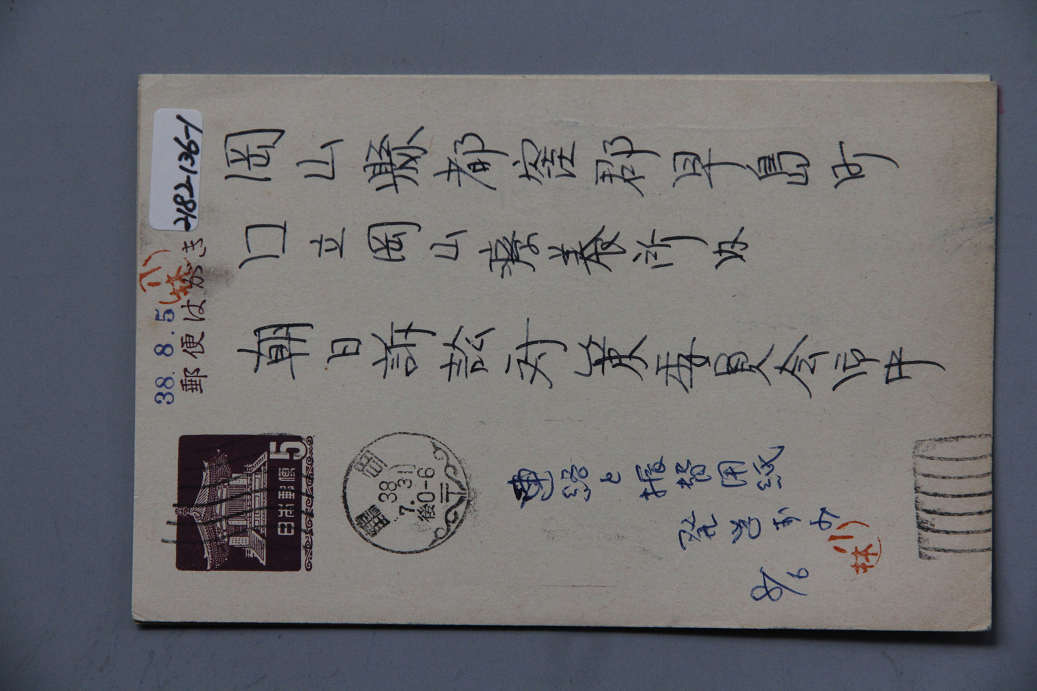 2182136-1
郵便はがき
小林
38.8.5
岡山縣都窪郡早島町
囗立岡山療養所内
朝日訴訟対策委員会御中
5
日本郵便
38
7.31
後0-6
連絡と振替用紙
発送ずみ
8/6
小林